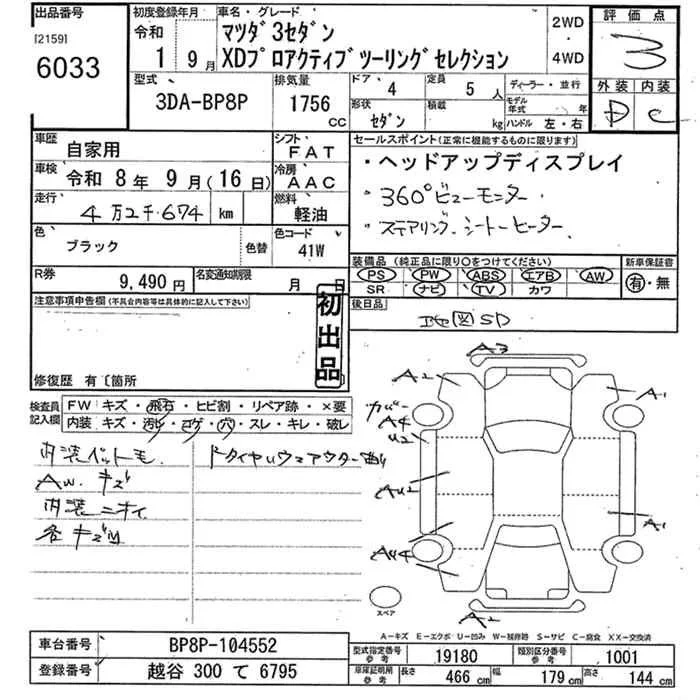 出品番号 [2159] 6033
初度登録年月 令和 1年 9月
車名・グレード マツダ3セダン XDプロアクティブツーリングセレクション
2WD・4WD
評価点 3
外装 D 内装 C
型式 3DA-BP8P
排気量 1756 CC
ドア 4 定員 5人
形状 セダン 積載 kg
ディーラー・並行
モデル年式 年
ハンドル 左・右
車歴 自家用
シフト FAT
車検 令和 8年 9月(16日)
冷房 AAC
走行 4万2千674 km
燃料 軽油
色 ブラック 色替
色コード 41W
R券 9,490円
名変通知期限 月 日
セールスポイント(正常に機能するものに限ります)
・ヘッドアップディスプレイ
・360°ビューモニター
・ステアリング、シートヒーター
装備品(純正品に限り○をつけてください)
PS PW ABS エアB AW
SR ナビ TV カワ
新車保証書 有・無
後日品 地図SD
注意事項申告欄(不具合内容等は具体的に記入して下さい)
初出品
修復歴 有〔箇所
検査員記入欄
FW キズ・飛石・ヒビ割・リペア跡・×要
内装 キズ・汚レ・コゲ・穴・スレ・キレ・破レ
内装ペット毛
AW. キズ
内装ニオイ
各キズU
A3
A2
A1
カバーA4
U2
AU2
A1
AU4
A2
スペア
A-キズ E-エクボ U-凹み W-補修跡 S-サビ C-腐食 XX-交換済
車台番号 BP8P-104552
登録番号 越谷 300 て 6795
型式指定番号 参考 19180
類別区分番号 参考 1001
車庫証明用 参考 長さ 466 cm 幅 179 cm 高さ 144 cm